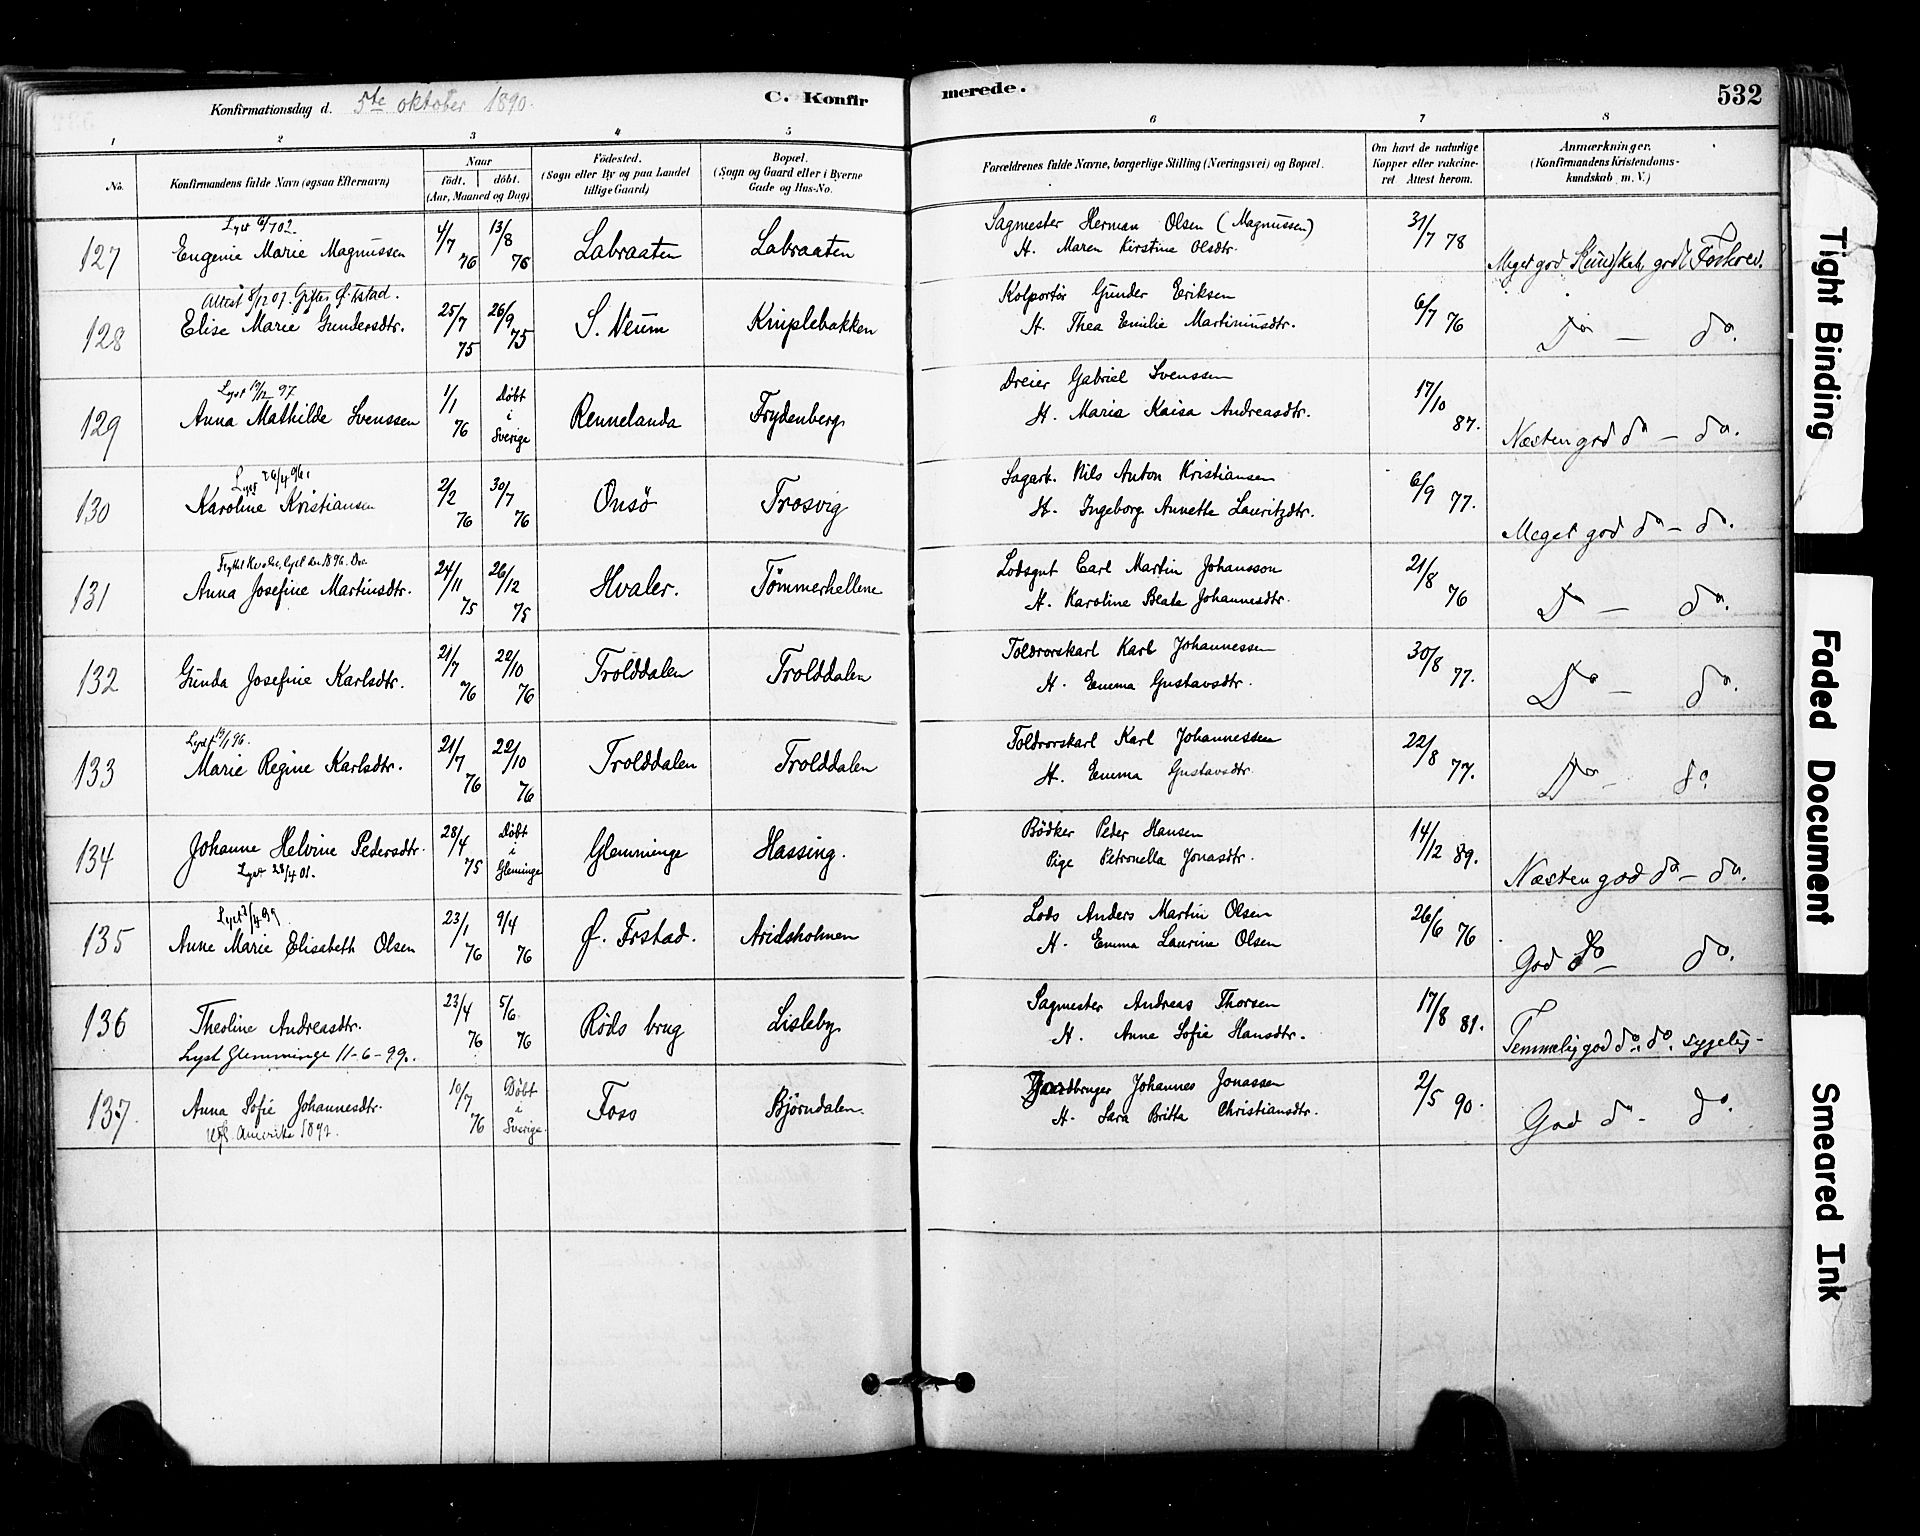 Konfirmationsdag d. 5te oktober 1890.
C. Konfir
merede.
532
1 2 3 4 5 6 7 8
No.
Konfirmandens fulde Navn (ogsaa Efternavn)
Naar
født. døbt.
(Aar, Maaned og Dag)
Fødested.
(Sogn eller By og paa Landet
tillige Gaard)
Bopæl.
(Sogn og Gaard eller i Byerne
Gade og Hus-No.
Forældrenes fulde Navne, borgerlige Stilling (Næringsvei) og Bopæl.
Om havt de naturlige
Kopper eller vakcine-
ret Attest herom.
Anmærkninger.
(Konfirmandens Kristendoms-
kundskab m. V.)
Lyst 6/7 02.
127 Eugenie Marie Magnussen 4/7 76 13/8 76 Labraaten Labraaten
Sagmester Herman Olsen (Magnussen)
H. Maren Kirstine Olsdtr.
31/7 78 Meget god Kundskab, godt Forhold.
Attest 8/12 07. Giftes Ø. Fstad.
128 Elise Marie Gundersdtr. 25/7 75 26/9 75 S. Neum Kniplebakken
Kolportør Gunder Eriksen
H. Thea Emilie Martiniusdtr.
6/7 76 Do — do.
Lyst 19/12 97
129 Anna Mathilde Svenssen 1/1 76 Døbt i Sverige Rennelanda Frydenberg
Dreier Gabriel Svenssen
H. Maria Kaisa Andreasdtr.
17/10 87. Næsten god do — do.
Lyst 26/4 96.
130 Karoline Kristiansen 2/2 76 30/7 76 Onsö Trosvig
Sagarb. Nils Anton Kristiansen
H. Ingeborg Annette Lauritzdtr.
6/9 77. Meget god do — do.
131 Anna Josefine Martinsdtr. 24/11 75 26/12 75 Hvaler. Tömmerhellene
Lodsgut Carl Martin Johansson
H. Karoline Beate Johannesdtr.
21/8 76 Do — do.
132 Gunda Josefine Karlsdtr. 21/7 76 22/10 76 Trolddalen Trolddalen
Toldrorskarl Karl Johannessen
H. Emma Gustavsdtr.
30/8 77. Do — do.
Lyst 19/1 96.
133 Marie Regine Karlsdtr. 21/7 76 22/10 76 Trolddalen Trolddalen
Toldrorskarl Karl Johannessen
H. Emma Gustavsdtr
22/8 77. Do — do
134 Johanne Helvine Pedersdtr. 28/4 75 Døbt i Gleminge Glemminge Hassing.
Lyst 28/4 01.
Bödker Peder Hansen
Pige Petronella Jonasdtr.
14/12 89. Næsten god do — do.
Lyst 3/4 99
135 Anne Marie Elisabeth Olsen 23/1 76 9/4 76 Ø. Frstad. Aridsholmen
Lods Anders Martin Olsen
H. Emma Laurine Olsen
26/6 76 God do — do.
136 Theoline Andreasdtr. 23/4 76 5/6 76 Røds brug Lisleby
Lyst Glemminge 11-6-99.
Sagmester Andreas Thorsen
H. Anne Sofie Hansdtr.
17/8 81. Temmelig god do. do. sygelig-
137. Anna Sofie Johannesdtr. 10/7 76 Døbt i Sverige. Foss Björndalen.
Utfl. Amerika 1892.
Jordbruger Johannes Jonassen
H. Sara Britta Christiansdtr.
2/5 90. God do - do.
Tight Binding
Faded Document
Smeared Ink